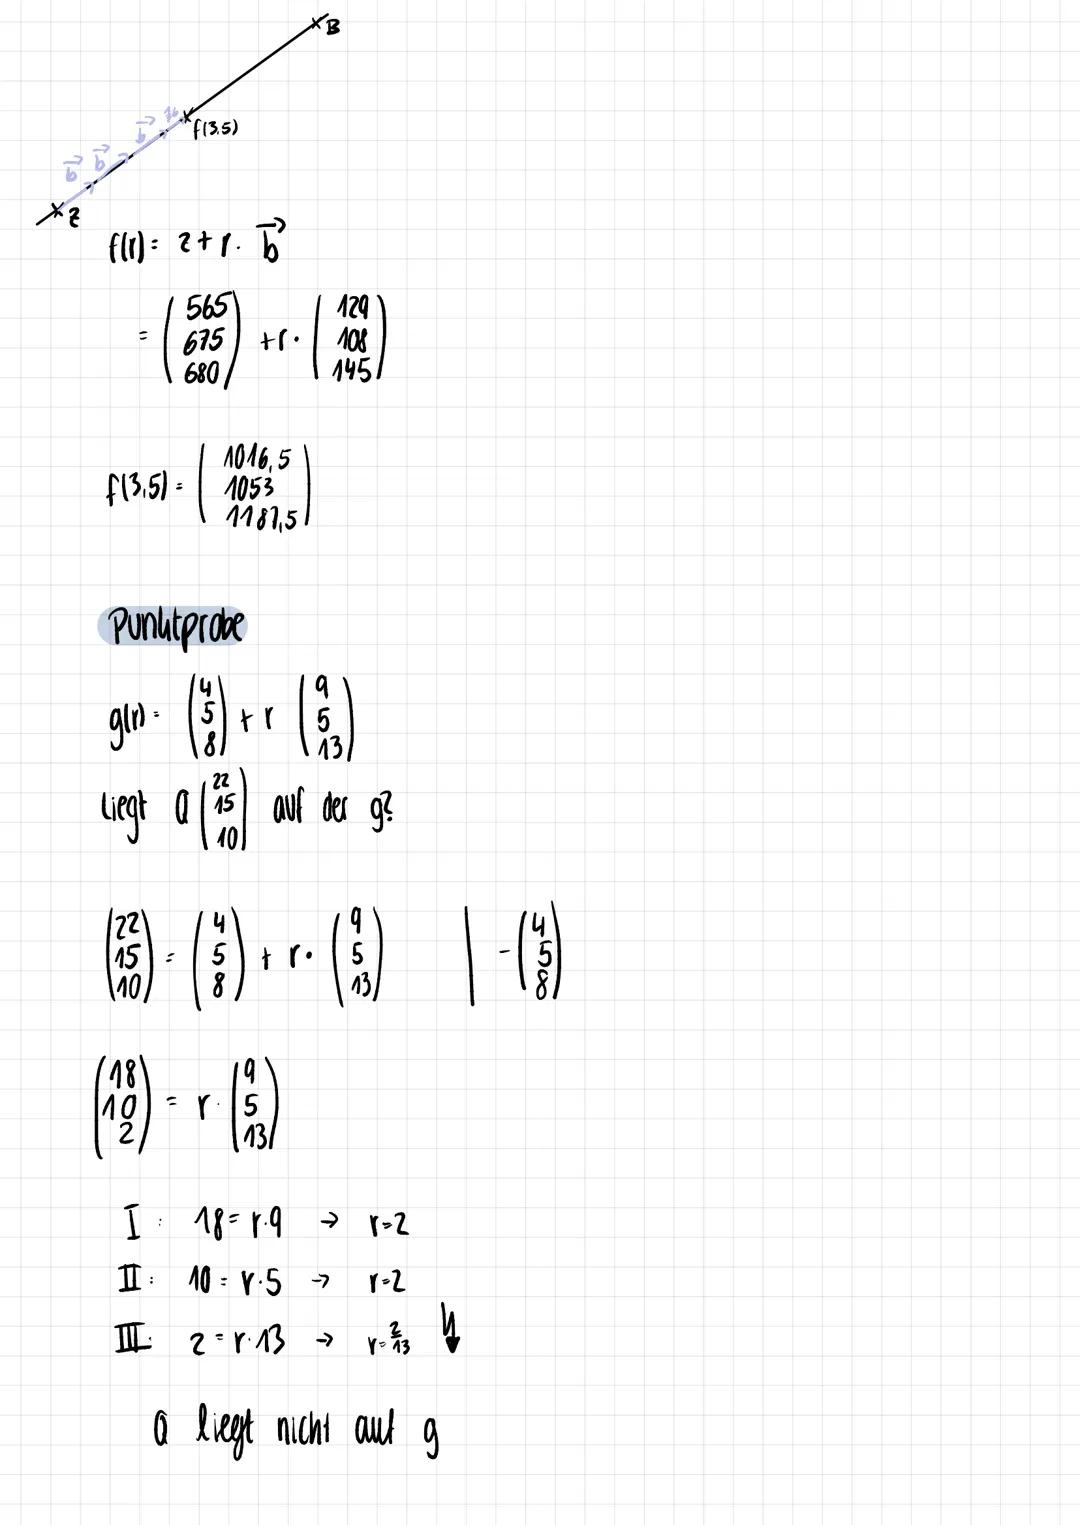 B
b⃗ b⃗ b⃗
f(3,5)
z
f(r) = z + r · b⃗
= (565 675 680) + r · (129 108 145)
f(3,5) = (1016,5 1053 1187,5)
Punktprobe
g(r) = (4 5 8) + r (9 5 13)
Liegt Q (22 15 10) auf der g?
(22 15 10) = (4 5 8) + r · (9 5 13) | - (4 5 8)
(18 10 2) = r · (9 5 13)
I: 18 = r·9 → r=2
II: 10 = r·5 → r=2
III: 2 = r·13 → r=2/13
Q liegt nicht auf g